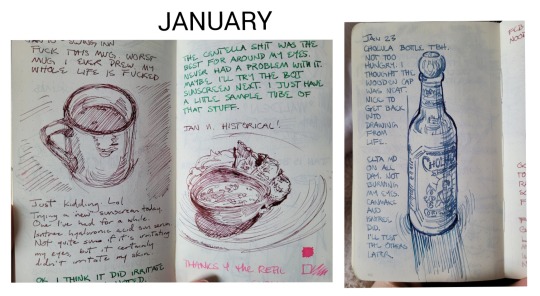 JANUARY
FUCK THIS MUG. WORST
MUG I EVER DREW. MY
WHOLE LIFE IS FUCKED
Just kidding, lol
Trying a new sunscreen today.
One I've had for a while.
hyaluronic acid sun serum.
Not quite sure if it's irritating
my eyes, but it certainly
didn't irritate my skin.
OK I THINK IT DID IRRITATE
THE CENTELLA SHIT WAS THE
BEST FOR AROUND MY EYES.
NEVER HAD A PROBLEM WITH IT.
MAYBE I'LL TRY THE BOJ
SUNSCREEN NEXT. I JUST HAVE
A LITTLE SAMPLE TUBE OF
THAT STUFF.
JAN 11. HISTORICAL!
THANKS 4 the REFILL
JAN 23
CHOLULA BOTTLE TBH.
NOT TOO
HUNGRY. I
THOUGHT THE
WOODEN CAP
WAS NEAT.
NICE TO
GET BACK
INTO
DRAWING
FROM
LIFE.
ELTA MD
ON ALL
DAY. NOT
BURNING
MY EYES.
CANMAKE
AND
DID.
I'LL TEST
THE OTHERS
LATER.
CHOLULA